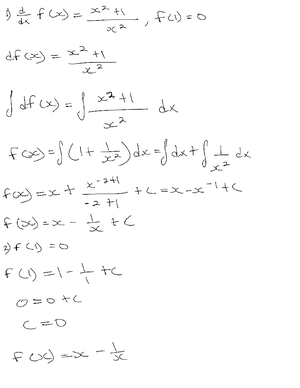 1) d/dx f(x) = x²+1/x² , f(1)=0
df(x) = x²+1/x²
∫df(x) = ∫ x²+1/x² dx
f(x) = ∫(1+ 1/x²)dx = ∫dx + ∫ 1/x² dx
f(x) = x + x⁻²⁺¹/-2+1 + C = x - x⁻¹ + C
f(x) = x - 1/x + C
2) f(1) = 0
f(1) = 1 - 1/1 + C
0 = 0 + C
C = 0
f(x) = x - 1/x